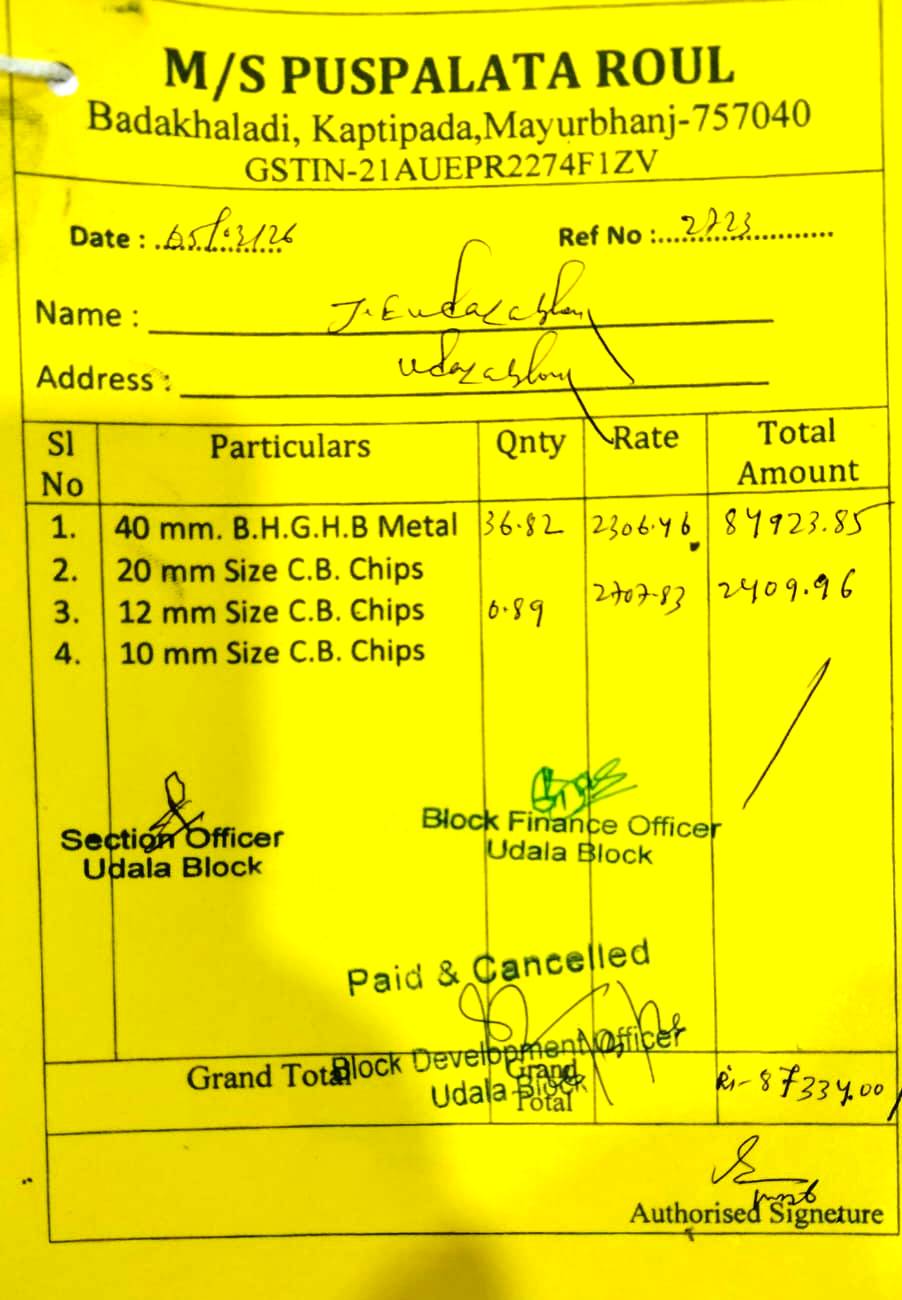 M/S PUSPALATA ROUL
Badakhaladi, Kaptipada,Mayurbhanj-757040
GSTIN-21AUEPR2274F1ZV
Date : 05/03/26 Ref No : 2723
Name : J.E
Address :
Sl No Particulars Qnty Rate Total Amount
1. 40 mm. B.H.G.H.B Metal 36.82 2306.46 84923.85
2. 20 mm Size C.B. Chips
3. 12 mm Size C.B. Chips 0.89 2707.83 2409.96
4. 10 mm Size C.B. Chips
Section Officer
Udala Block
Block Finance Officer
Udala Block
Paid & Cancelled
Block Development Officer
Udala Block
Grand Total Grand Total 87334.00
Authorised Signeture